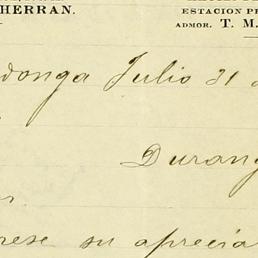 HERRAN.
ESTACION PE
ADMOR. T. M.
donga Julio 31 d
Durang
rese su aprecia